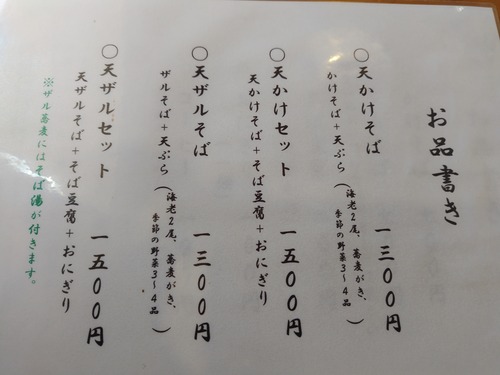 お品書き
○天かけそば 一三00円
かけそば+天ぷら(海老2尾、蕎麦がき、
季節の野菜3~4品)
○天かけセット 一五00円
天かけそば+そば豆腐+おにぎり
○天ザルそば 一三00円
ザルそば+天ぷら(海老2尾、蕎麦がき、
季節の野菜3~4品)
○天ザルセット 一五00円
天ザルそば+そば豆腐+おにぎり
※ザル蕎麦にはそば湯が付きます。